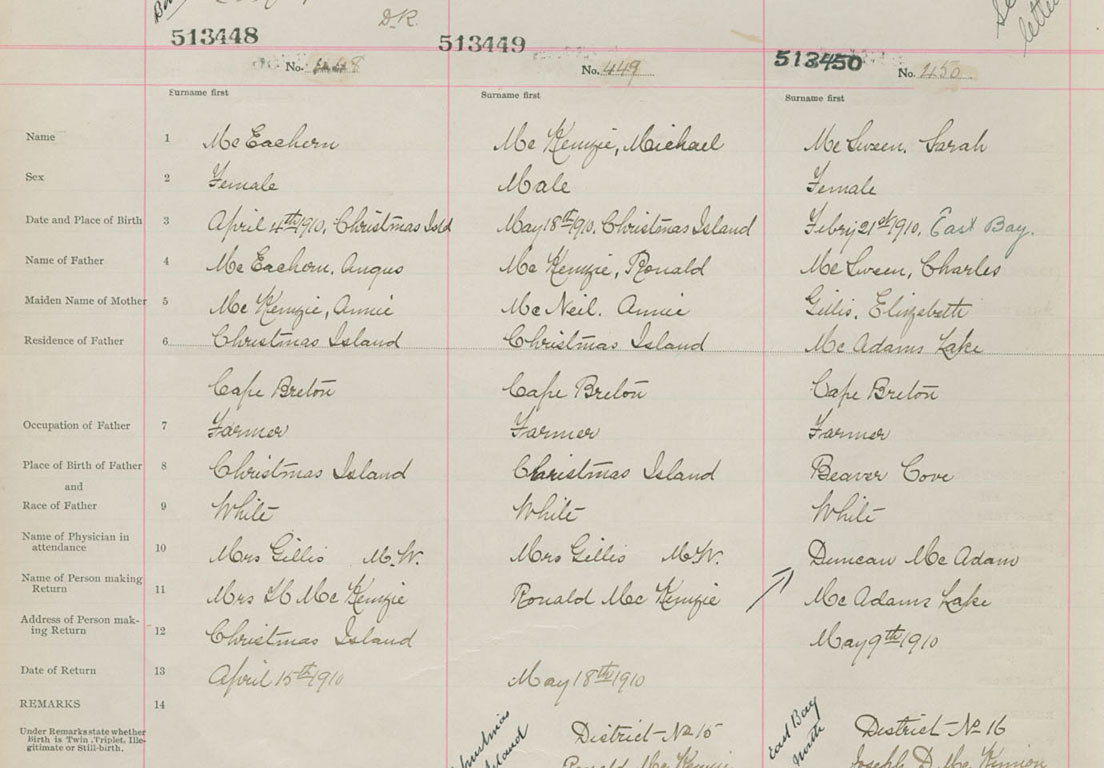 D.R.
513448 513449 513450
No. 448 No. 449 No. 450
Surname first Surname first Surname first
Name 1 Mc Eachern Mc Kenzie, Michael Mc Sween, Sarah
Sex 2 Female Male Female
Date and Place of Birth 3 April 4th 1910, Christmas Isld May 18th 1910, Christmas Island Febry 21st 1910, East Bay.
Name of Father 4 Mc Eachern, Angus Mc Kenzie, Ronald Mc Sween, Charles
Maiden Name of Mother 5 Mc Kenzie, Annie Mc Neil, Annie Gillis, Elizabeth
Residence of Father 6 Christmas Island Christmas Island Mc Adams Lake
Cape Breton Cape Breton Cape Breton
Occupation of Father 7 Farmer Farmer Farmer
Place of Birth of Father 8 Christmas Island Christmas Island Beaver Cove
and
Race of Father 9 White White White
Name of Physician in
attendance 10 Mrs Gillis M.W. Mrs Gillis M.W. Duncan Mc Adam
Name of Person making
Return 11 Mrs Mc Kenzie Ronald Mc Kenzie Mc Adams Lake
Address of Person mak-
ing Return 12 Christmas Island May 9th 1910
Date of Return 13 April 15th 1910 May 18th 1910
REMARKS 14
Under Remarks state whether
Birth is Twin, Triplet, Ille-
gitimate or Still-birth.
Christmas
Island
District - No 15
Ronald Mc Kenzie
East Bay
North
District - No 16
Joseph D. Mc Kinnon
letter